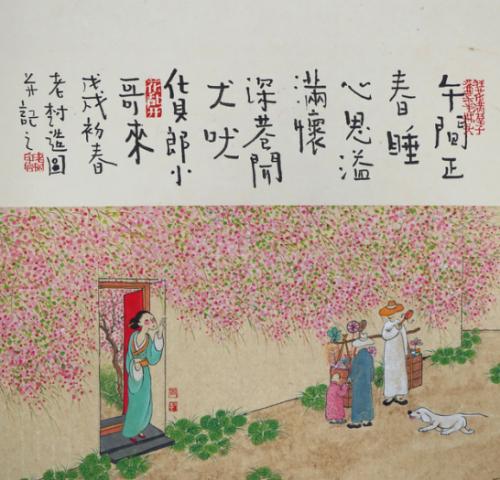 午間正
春睡
心思溢
滿懷
深巷聞
犬吠
貨郎小
哥來
戊戌初春
老村造圖
并記之